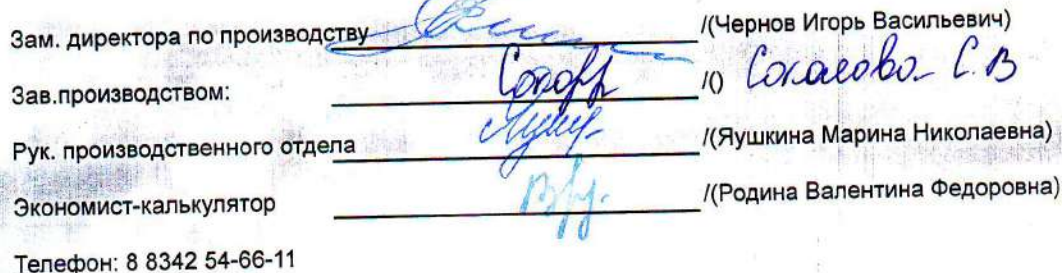 Зам. директора по производству /(Чернов Игорь Васильевич)
Зав.производством: /() Сокалова С.В
Рук. производственного отдела /(Яушкина Марина Николаевна)
Экономист-калькулятор /(Родина Валентина Федоровна)
Телефон: 8 8342 54-66-11